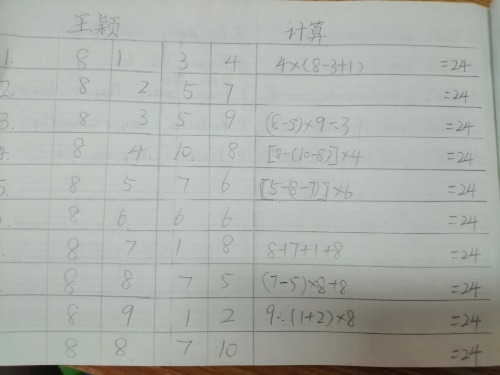 王颖 计算
1. 8 1 3 4 4×(8-3+1) =24
2. 8 2 5 7 =24
3. 8 3 5 9 (8-5)×9-3 =24
4. 8 4 10 8 [8-(10-8)]×4 =24
5. 8 5 7 6 [5-(8-7)]×6 =24
8 6 6 6 =24
8 7 1 8 8+7+1+8 =24
8 8 7 5 (7-5)×8+8 =24
8 9 1 2 9÷(1+2)×8 =24
8 8 7 10 =24